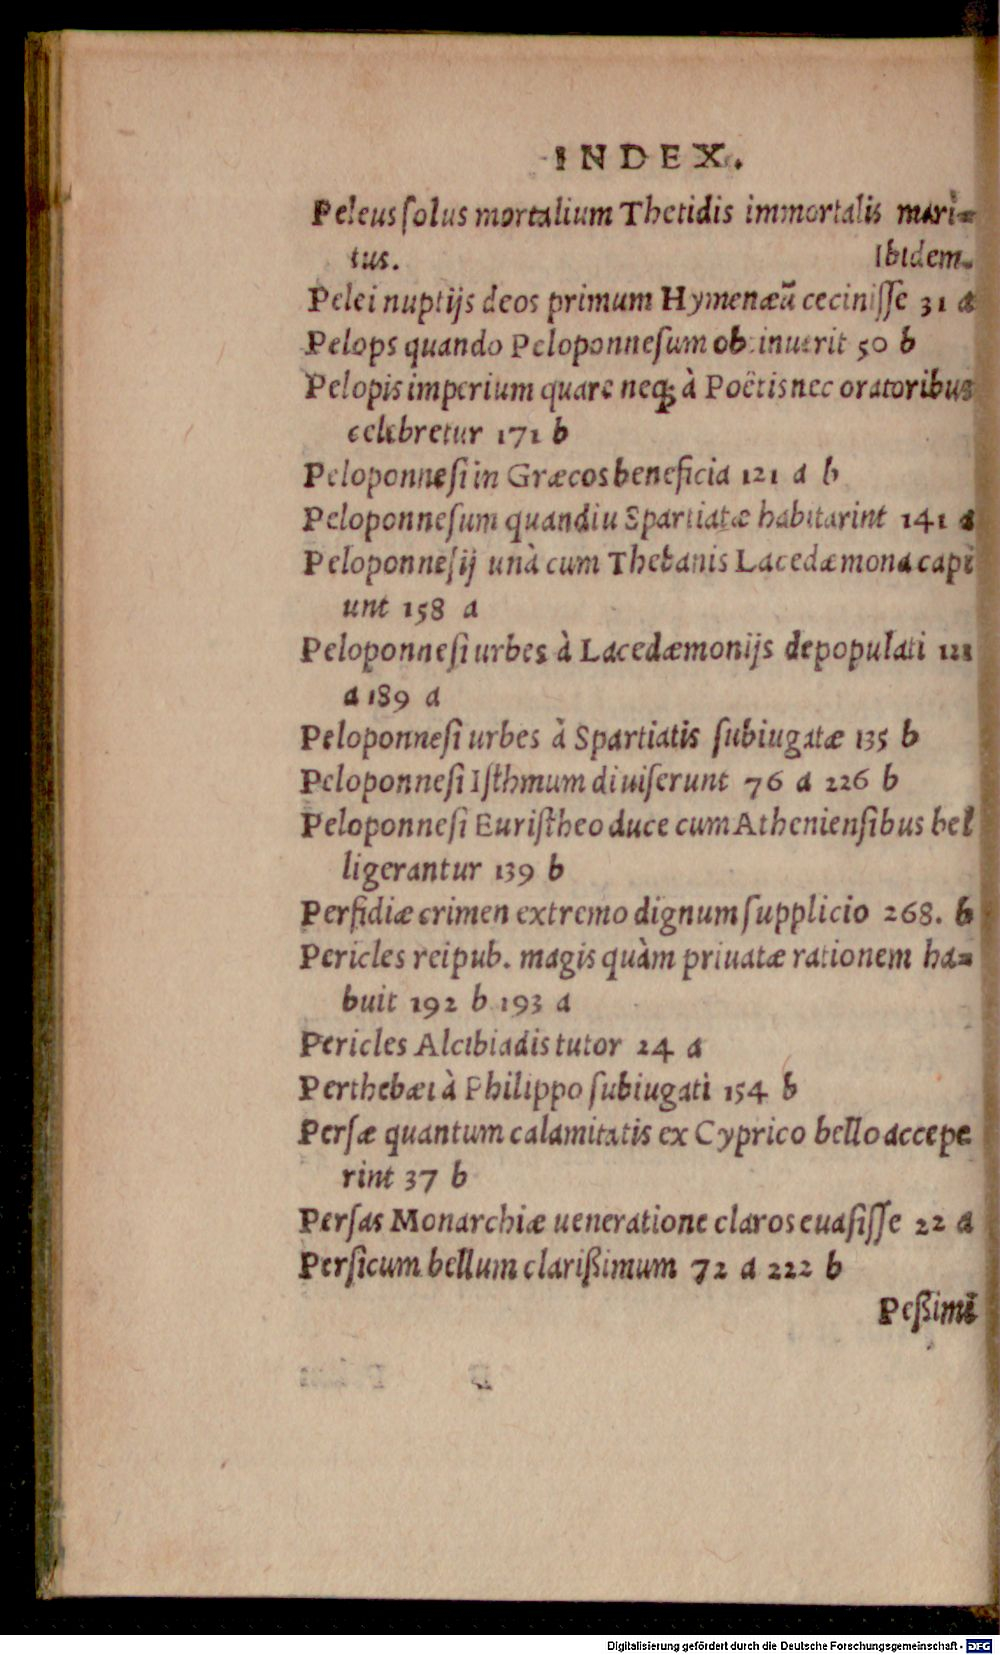 INDEX.
Peleus ſolus mortalium Thetidis immortalis mari-
tus. Ibidem.
Pelei nuptijs deos primum Hymenæũ ceciniſſe 31 a
Pelops quando Peloponneſum obtinuerit 50 b
Pelopis imperium quare neq; à Poëtis nec oratoribus
celebretur 171 b
Peloponneſi in Græcos beneficia 121 a b
Peloponneſum quandiu Spartiatæ habitarint 141 a
Peloponneſij unà cum Thebanis Lacedæmona capi
unt 158 a
Peloponneſi urbes à Lacedæmonijs depopulati
a 189 a
Peloponneſi urbes à Spartiatis ſubiugatæ 135 b
Peloponneſi Iſthmum diuiſerunt 76 a 226 b
Peloponneſi Euriſtheo duce cum Athenienſibus bel
ligerantur 139 b
Perfidiæ crimen extremo dignum ſupplicio 268. b
Pericles reipub. magis quàm priuatæ rationem ha-
buit 192 b 193 a
Pericles Alcibiadis tutor 24 a
Perthebæi à Philippo ſubiugati 154 b
Perſæ quantum calamitatis ex Cyprico bello accepe
rint 37 b
Perſas Monarchiæ ueneratione claros euaſiſſe 22 a
Perſicum bellum clarißimum 72 a 222 b
Peßimi
Digitalisierung gefördert durch die Deutsche Forschungsgemeinschaft - DFG